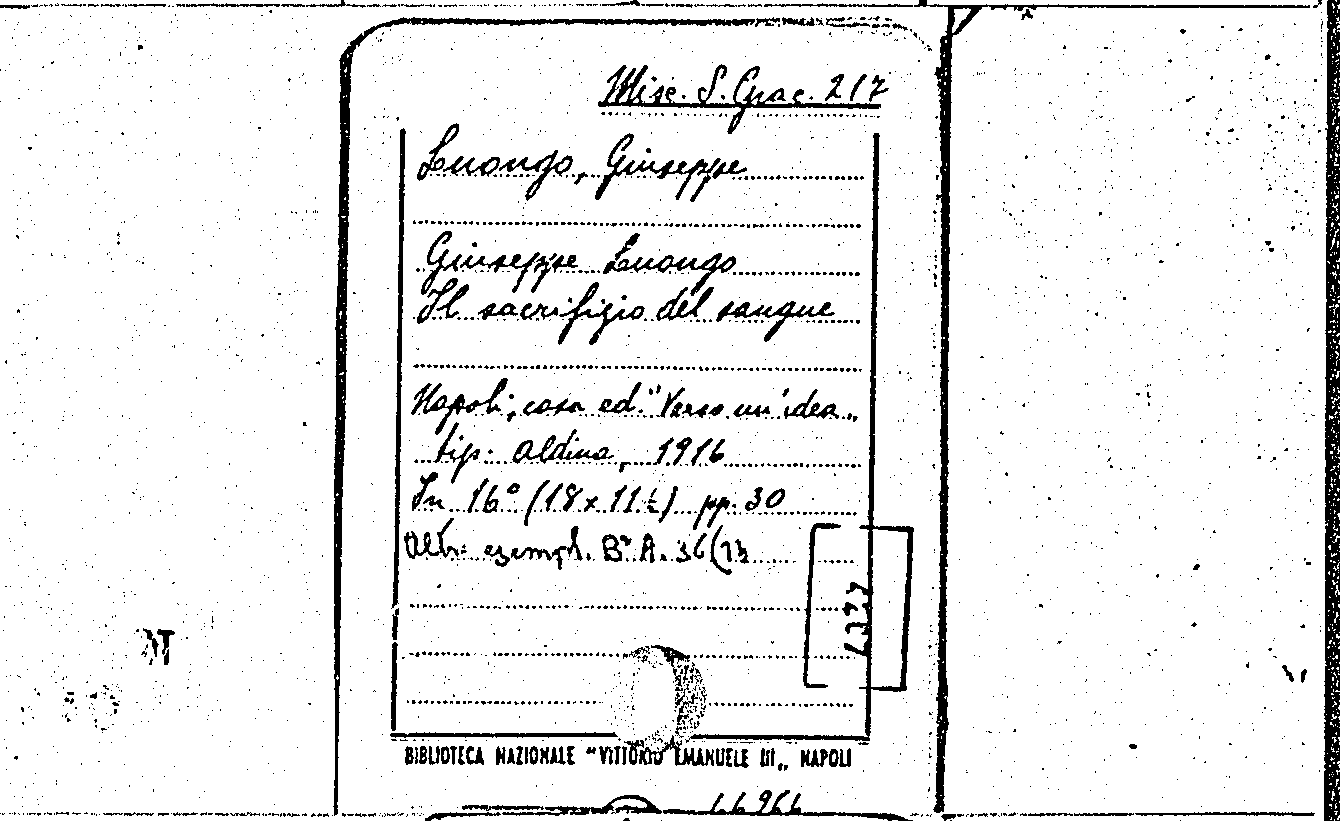 Misc. S. Grac. 217
Luongo, Giuseppe
Giuseppe Luongo
Il sacrifizio del sangue
Napoli, casa ed. "Verso un'idea„
tip. Aldina, 1916
In 16° (18x11½) pp. 30
Altr. esempl. Bª A. 36(23
BIBLIOTECA NAZIONALE "VITTORIO EMANUELE III„ NAPOLI